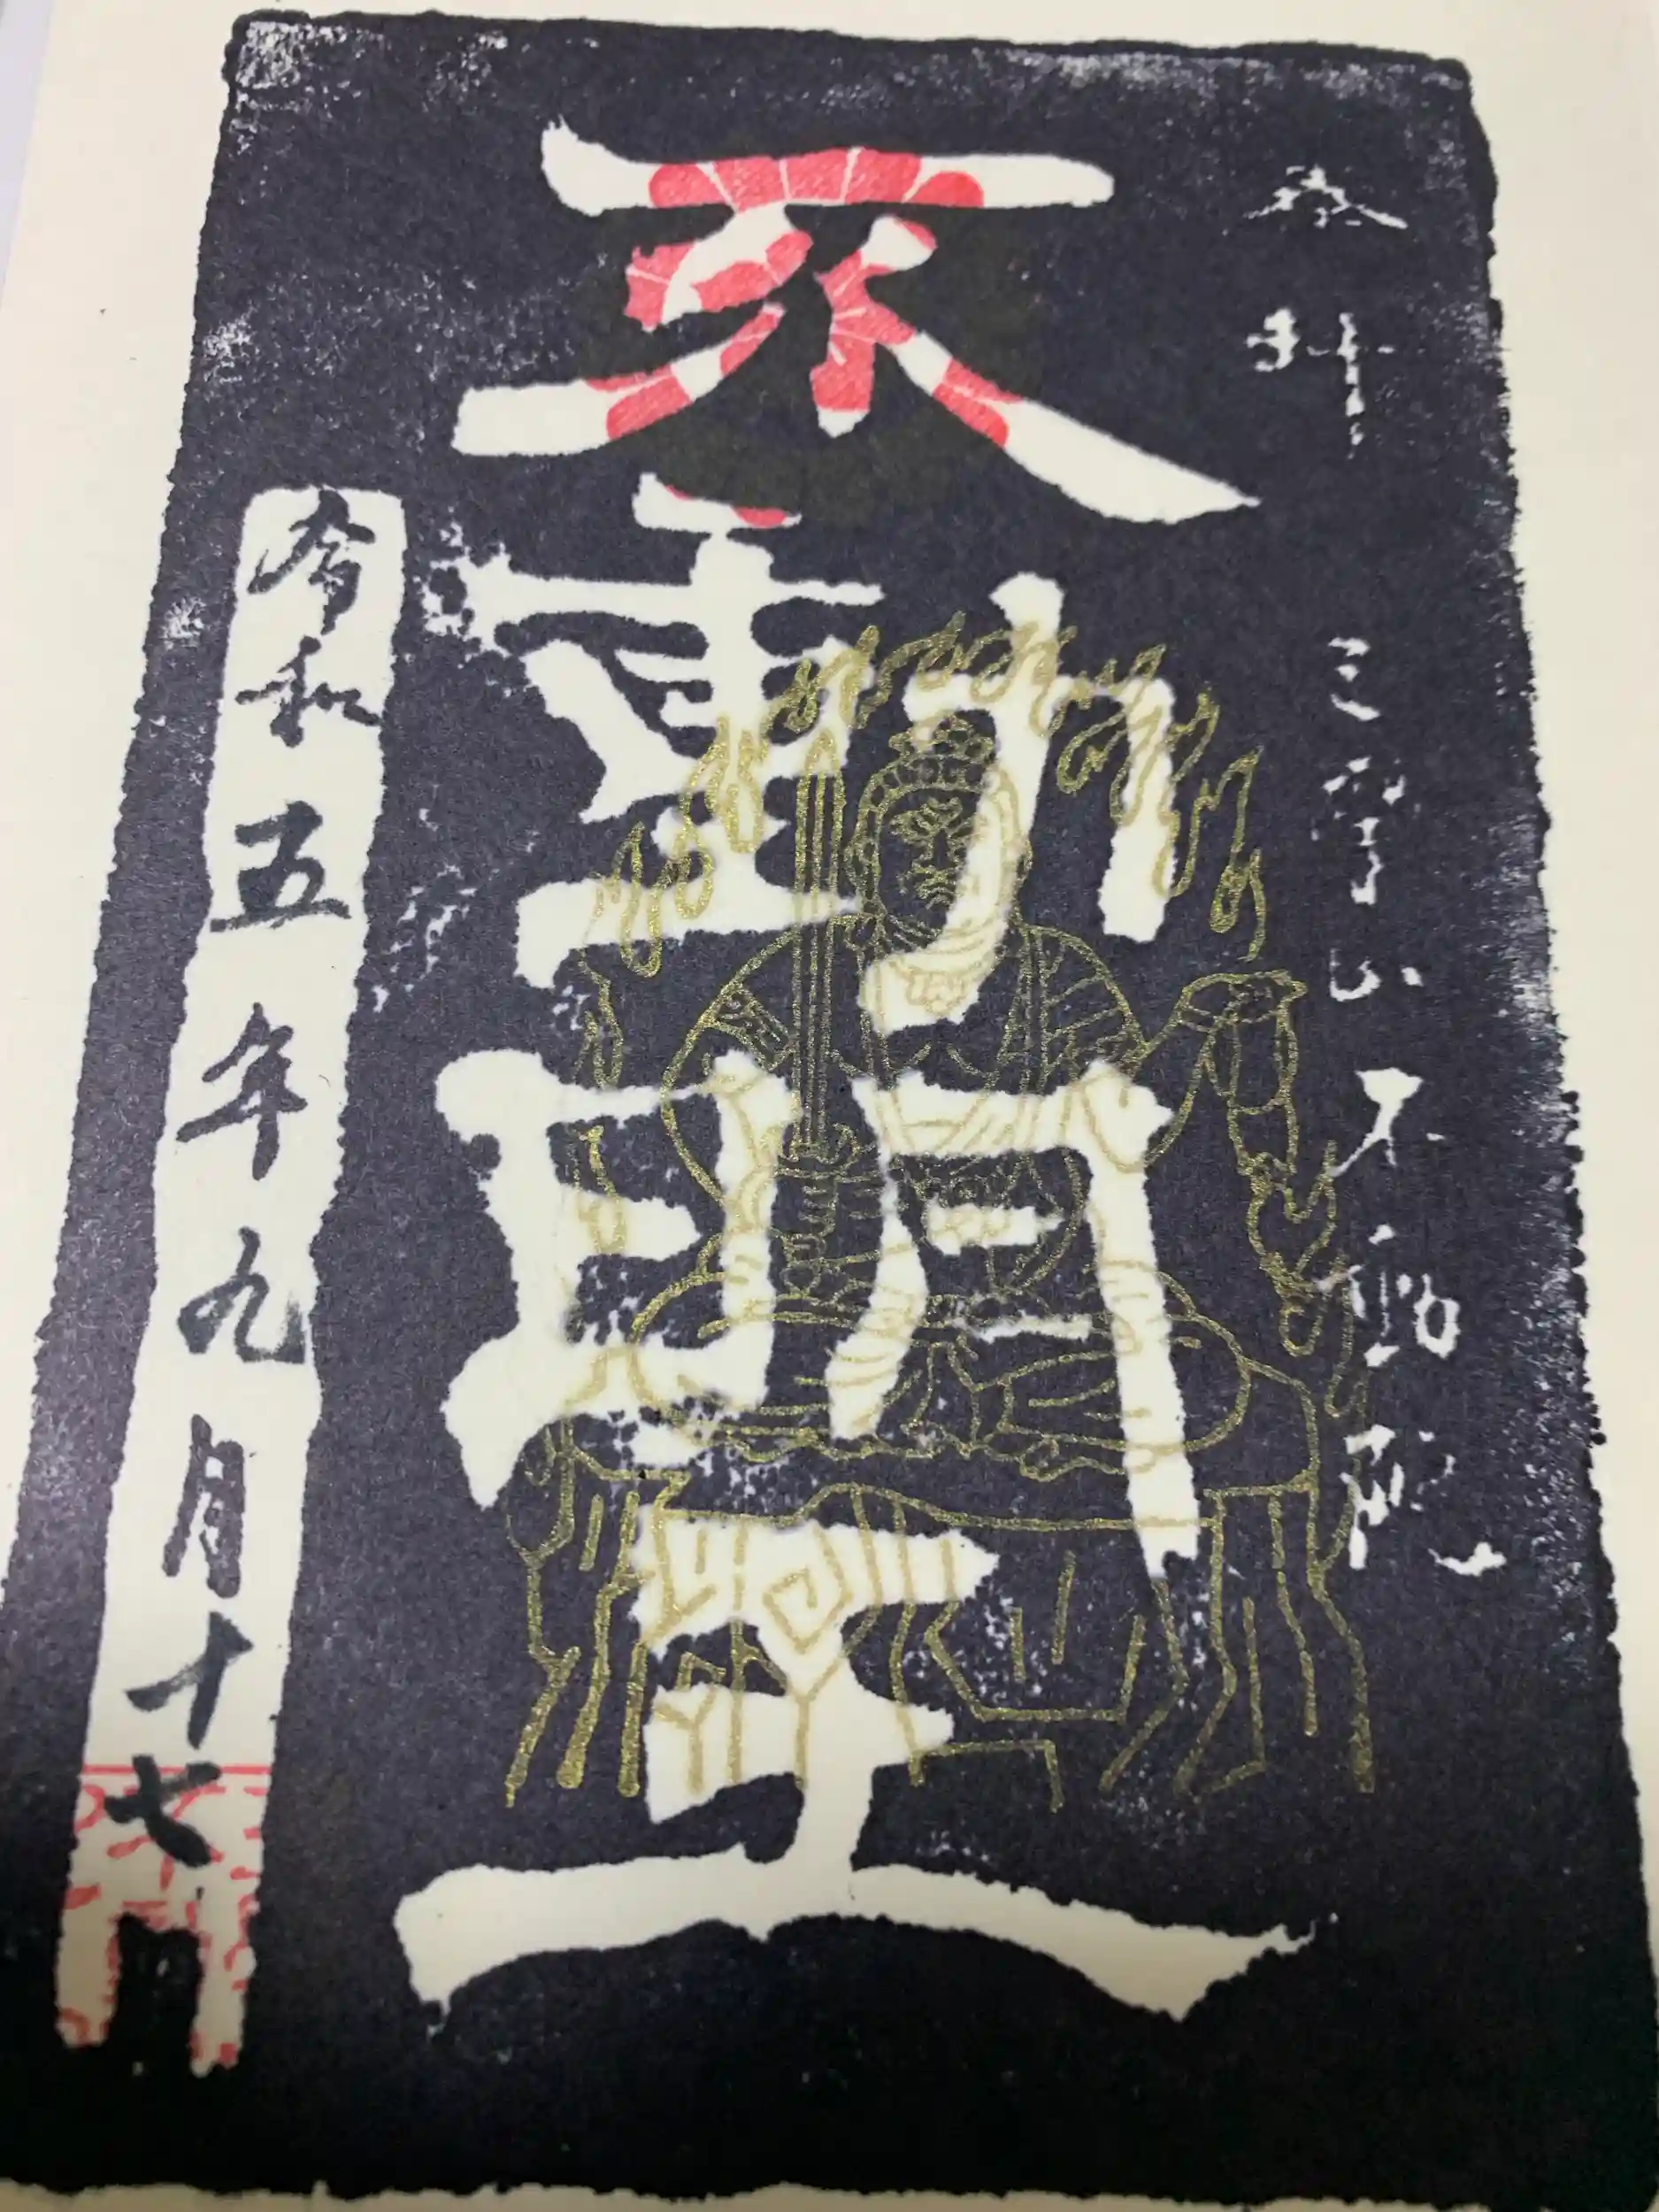 奉拝
三山 不動院
不動明王
令和五年九月十七日